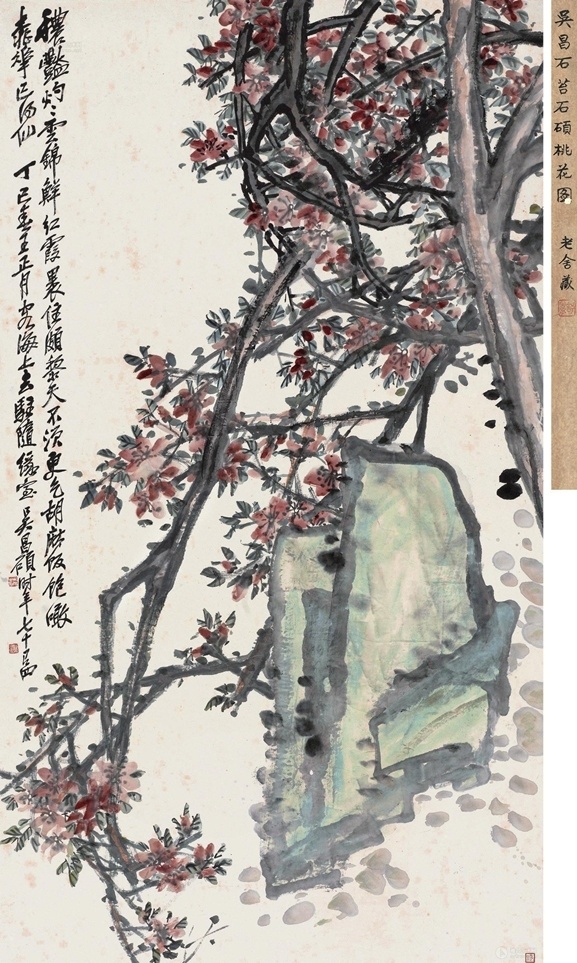 穠艷灼灼雲錦鮮紅霞裹住頗黎天不須更乞胡麻飯飽噉
桃華已得仙 丁巳春王正月客海上去駐隨緣室 吳昌碩時年七十四
吳昌石苔石碩桃花圖 老舍藏